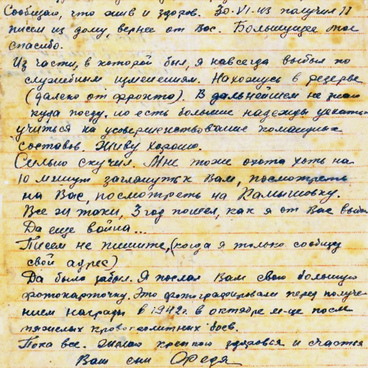 Сообщаю, что жив и здоров. 30-VI-43 получил 11
писем из дому, вернее от Вас. Большущее мое
спасибо.
Из части, в которой был, я навсегда выбыл по
служебным изменениям. Нахожусь в резерве
(далеко от фронта). В дальнейшем не знаю
куда поеду, но есть большие надежды
учиться на усовершенствование командных
составов. Живу хорошо.
Сильно скучил. Мне тоже охота хотя на
10 минут заглянуть к Вам, посмотреть
на Вас, посмотреть на Камышовку.
Все ж таки, 3 год пошел, как я от Вас
Да еще война...
Писем не пишите, (когда я только сообщу
свой адрес)
Да было забыл. Я послал Вам свою большую
фотокарточку. Это фотографировали перед получе-
нием награды в 1942г. в октябре м-це после
тяжелых кровопролитных боев.
Пока все. Желаю крепкого здоровья и счастья
Ваш сын Федя